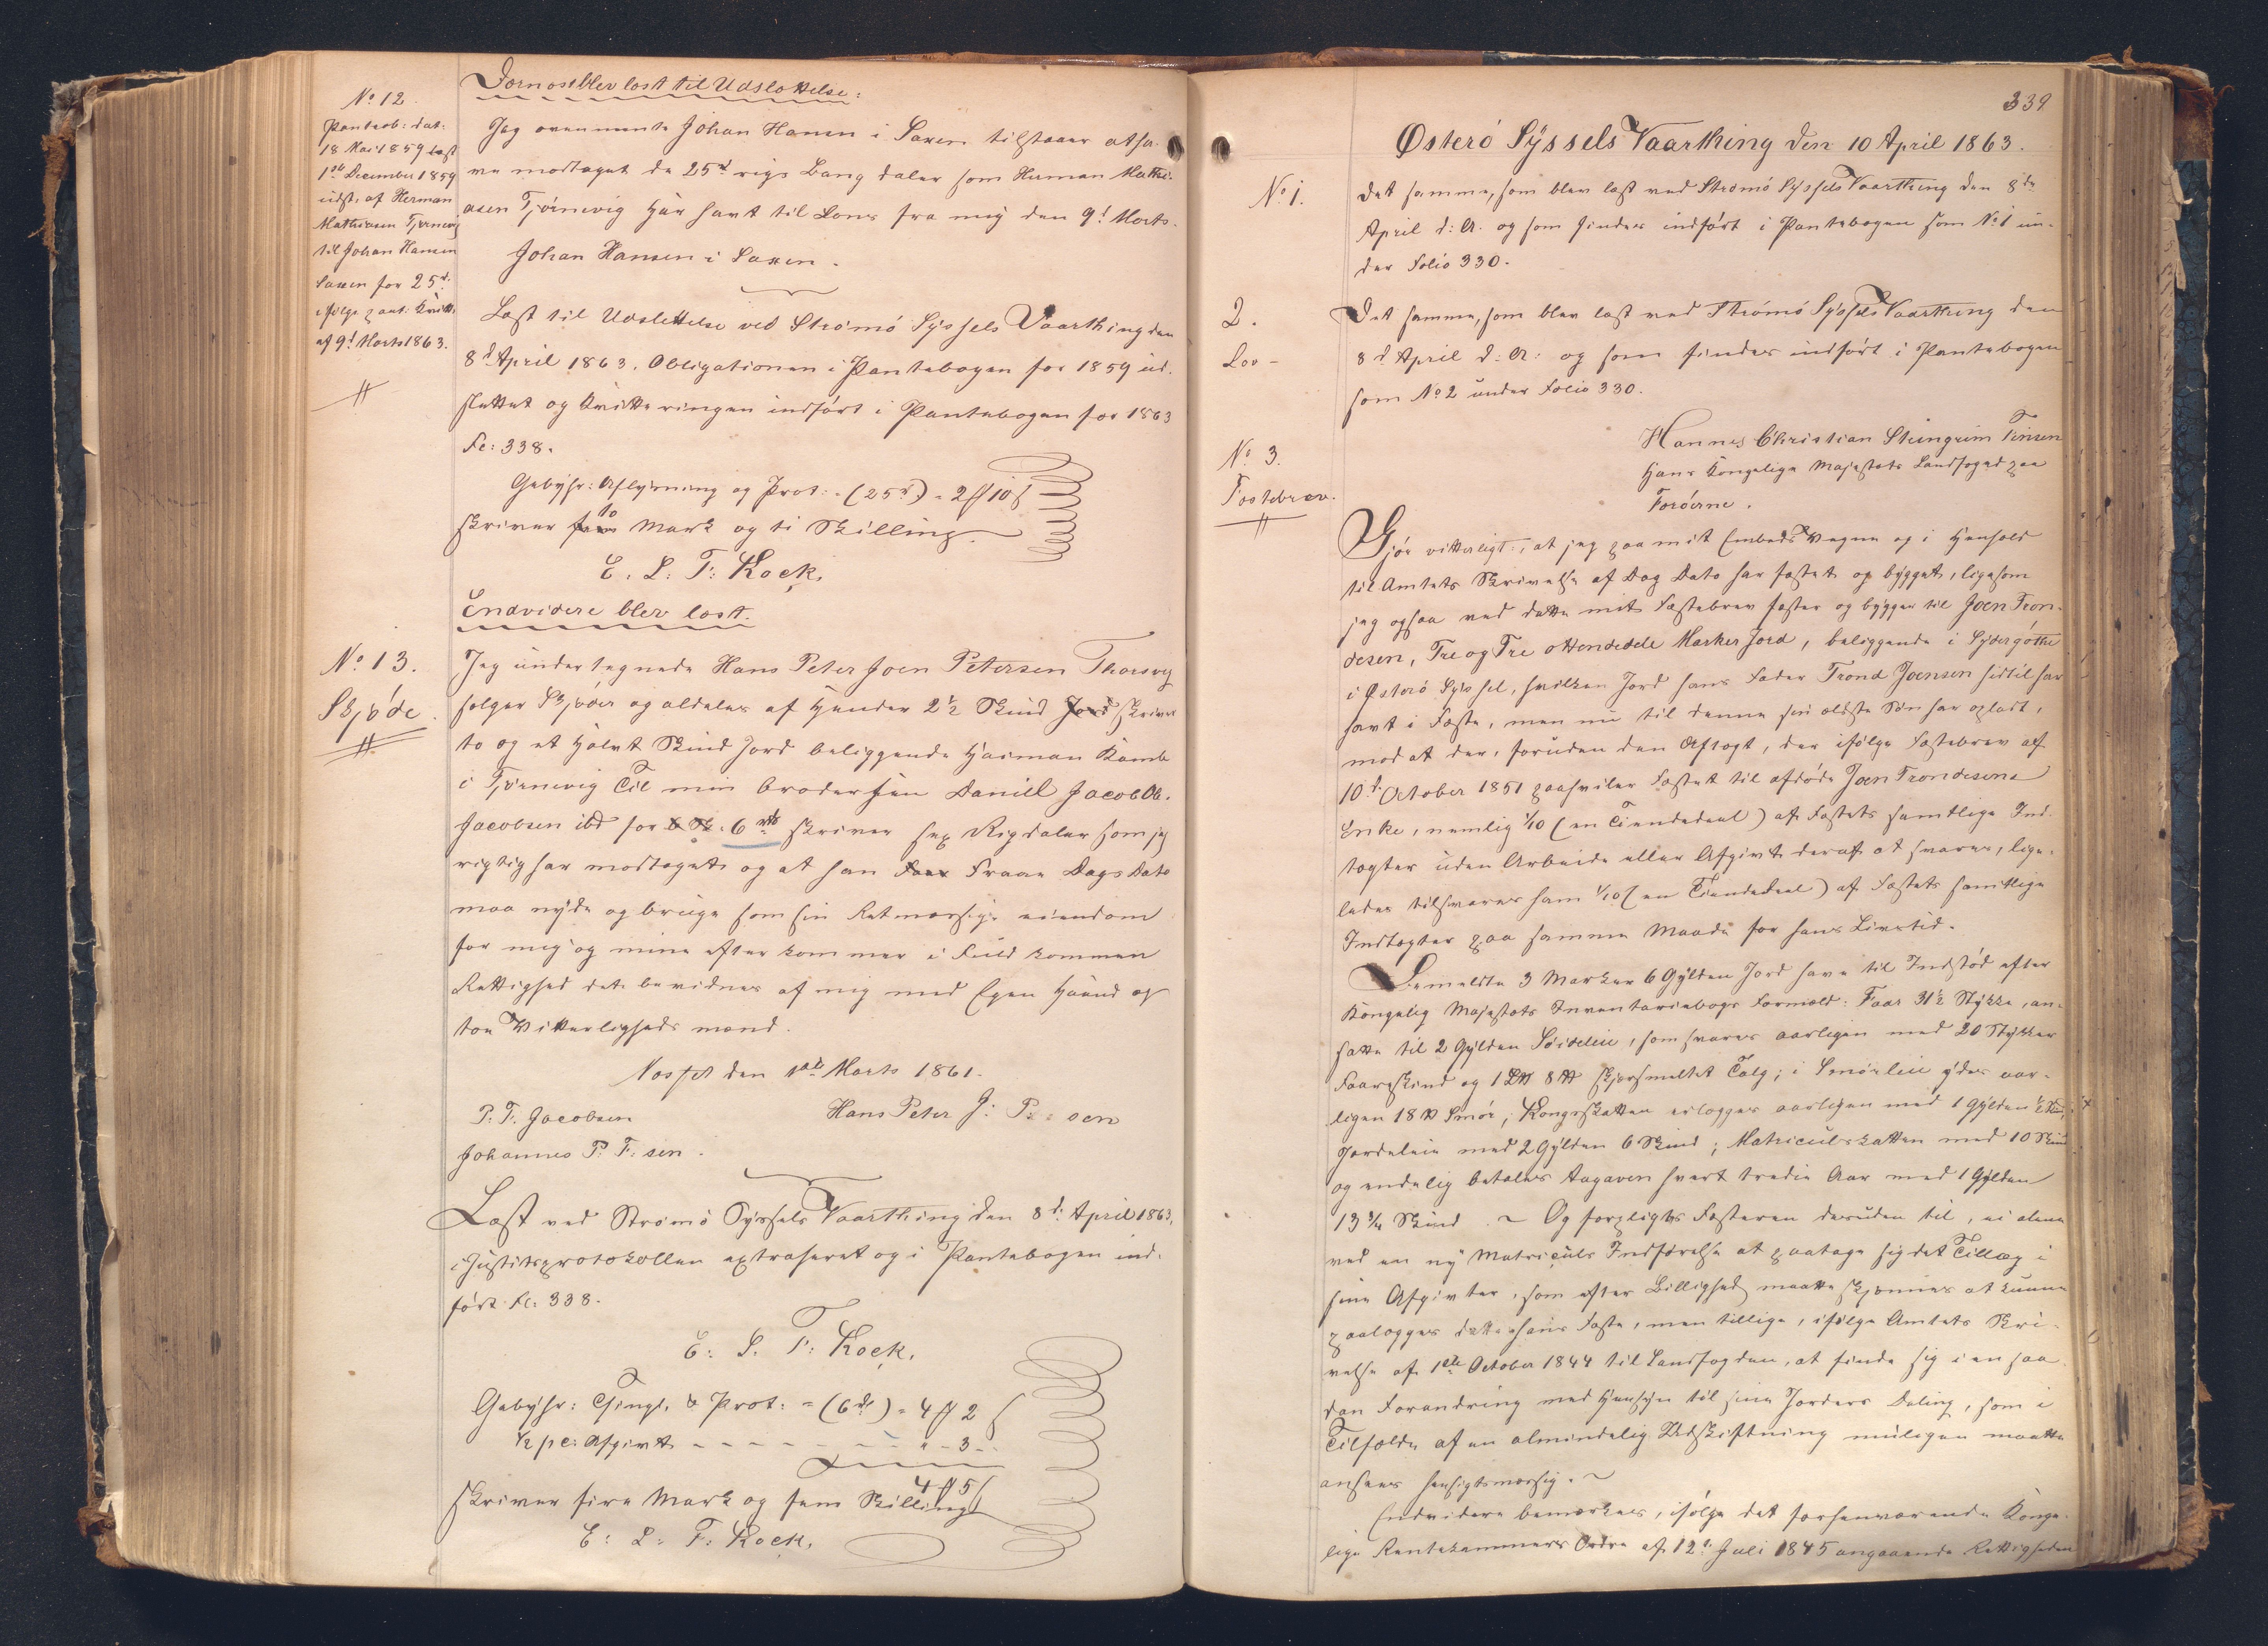 Dernæst blev læst til Udslettelse:
No 12.
Panteob: dat:
18 Mai 1859 læst
1ste December 1859
udst. af Herman
Mathiasen Tjørnevig
til Johan Hansen
Saxen for 25d.
ifølge paat. Kvitt.
af 9d Marts 1863.
Jeg ovennævnte Johan Hansen i Saxen tilstaaer at ha-
ve modtaget de 25d rigs Bang daler som Herman Mathi-
asen Tjørnevig har havt til Lons fra mig den 9d Marts.
Johan Hansen i Saxen.
Læst til Udslettelse ved Strømø Sýssels Vaarthing den
8d April 1863. Obligationen i Pantebogen for 1859 ud-
slettet og Kvitteringen indført i Pantebogen for 1863
Fc: 338.
Gebyhr: Aflysning og Prot: = (25d) = 2 ℳ 10 ß
skriver to Mark og ti Skilling.
E. L. T: Kock.
Endvidere blev læst.
No 13.
Skjøde.
Jeg undertegnede Hans Peter Joen Petersen Thorsvig
sælger Skjøder og aldeles af Hænder 2½ Skind Jord skriver
to og et halvt Skind Jord beliggende Haiman Kamb
i Tjørnevig Til min brodersøn Daniel Jacob Ob.
Jacobsen ibd for 6 rd skriver sex Rigsdaler som jeg
rigtig har modtaget og at han Fraae Dags Dato
maa nyde og bruge som sin Retmæssige eiendom
for mig og mine efterkommer i Fuldkommen
Rettighed det bevidnes af mig med Egen Haand og
toe Vitterligheds mænd.
den 1ste Marts 1861.
P. F. Jacobsen
Hans Peter J: P: = sen
Johannes P: F: sen.
Læst ved Strømø Sýssels Vaarthing den 8d. April 1863,
i Justitsprotokollen extraheret og i Pantebogen ind-
ført Fc: 338.
E: L. T: Kock.
Gebyhr: Thingl. & Prot: = (6 d) = 4 ℳ 2 ß
½ pc: Afgivt - - - - - - " - 3 -
4 ℳ 5 ß
skriver fire Mark og fem Skilling
E: L: T: Kock.
339
Østerö Sýssels Vaarthing den 10 April 1863.
No 1.
Det samme, som blev læst ved Strömö Sýssels Vaarthing den 8de
April d: A. og som findes indført i Pantebogen som No 1 un-
der Folio 330.
2.
Lov -
Det samme, som blev læst ved Strömö Sýssels Vaarthing den
8d April d: A: og som findes indført i Pantebogen
som No 2 under Folio 330.
No 3.
Fæstebrev.
Hannes Christian Steingrim Finsen
Hans Kongelige Majestæts Landfoged paa
Færøerne.
Gjør vitterligt, at jeg paa mit Embeds Vegne og i Henhold
til Amtets Skrivelse af Dag Dato har fæstet og bygget, ligesom
jeg ogsaa ved dette mit Fæstebrev fæster og bygger til Joen Tron-
desen, Tre og Tre ottendedele Marker Jord, beliggende i Sydergøthe
i Østerö Sýssel, hvilken Jord hans Fader Trond Joensen hidtil har
havt i Fæste, men nu til denne sin ældste Søn har opladt,
mod at der, foruden den Aftægt, der ifølge Fæstebrev af
10d. October 1851 paahviler Fæstet til afdøde Joen Trondesens
Enke, nemlig 1/10 (en Tiendedeel) af Fæstets samtlige Ind-
tægter uden Arbeide eller Afgivt deraf at svares, lige-
ledes tilsvares ham 1/10 (en Tiendedeel) af Fæstets samtlige
Indtægter paa samme Maade for hans Livstid.
Bemeldte 3 Marker 6 Gylden Jord have til Indstød efter
Kongelig Majestæts Inventariebogs Formeld: Faar 31½ Stykke, an-
satte til 2 Gylden Søideleie, som svares aarligen med 20 Stykker
Faareskind og 1 L℔ 8 ℔ skjærsmeltet Talg; i Smørleie ydes aar-
ligen 18 ℔ Smør; Kongsskatten erlægges aarligen med 1 Gylden ½ Skind,
Jordeleie med 2 Gylden 6 Skind; Matriculskatten med 10 Skind
og endelig betales Tagaven hvert tredie Aar med 1 Gylden
13 3/4 Skind. ~ Og forpligtes Fæsteren desuden til, ei alene
ved en ny Matriculs Indførelse at paatage sig det Tillæg i
sine Afgivter, som efter Billighed maatte skjønnes at kunne
paalægges dette hans Fæste, men tillige, ifølge Amtets Skri-
velse af 1ste October 1844 til Landfogden, at finde sig i en saa-
dan Forandring med Hensyn til sine Jorders Deling, som i
Tilfælde af en almindelig Udskiftning muligen maatte
ansees hensigtsmæssig. ~
Endvidere bemærkes, ifølge det forhenværende Konge-
lige Rentekammers Ordre af 12d. Juli 1845 angaaende Rettigheden